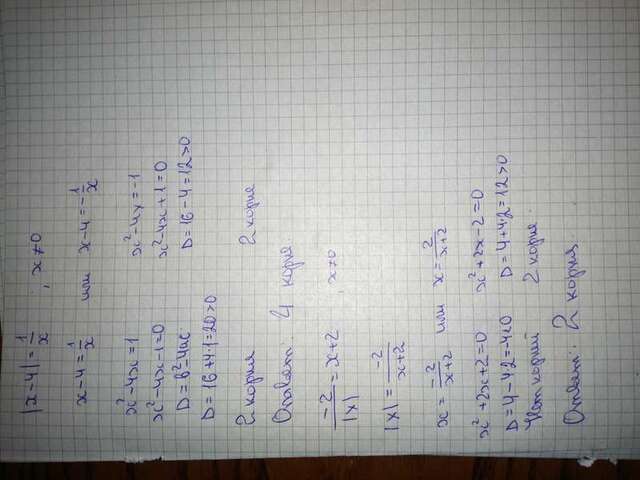 |x-4| = 1/x , x≠0
x-4 = 1/x или x-4 = -1/x
x²-4x=1 x²-4x=-1
x²-4x-1=0 x²-4x+1=0
D=b²-4ac D=16-4=12>0
D=16+4·1=20>0
2 корня 2 корня
Ответ: 4 корня.
-2/|x| = x+2 , x≠0
|x| = -2/x+2
x = -2/x+2 или x = 2/x+2
x²+2x+2=0 x²+2x-2=0
D=4-4·2=-4<0 D=4+4·2=12>0
Нет корней 2 корня.
Ответ: 2 корня.